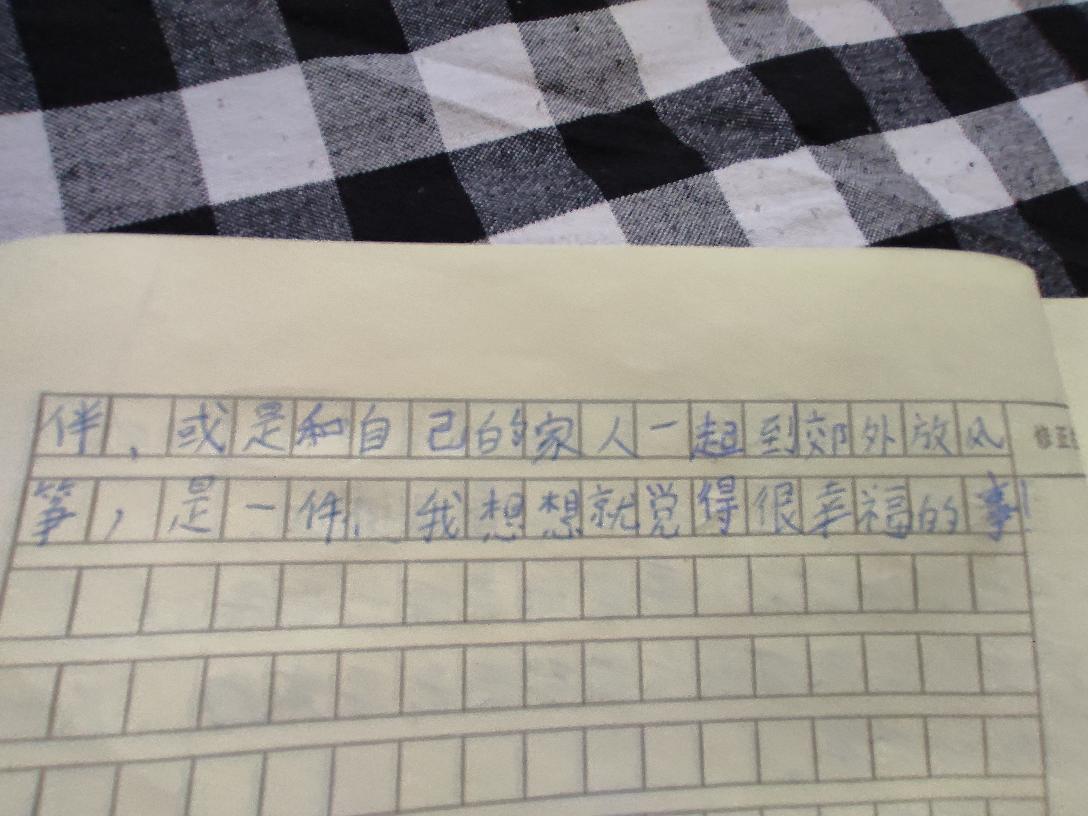 伴，或是和自己的家人一起到郊外放风
筝，是一件、我想想就觉得很幸福的事！
修正